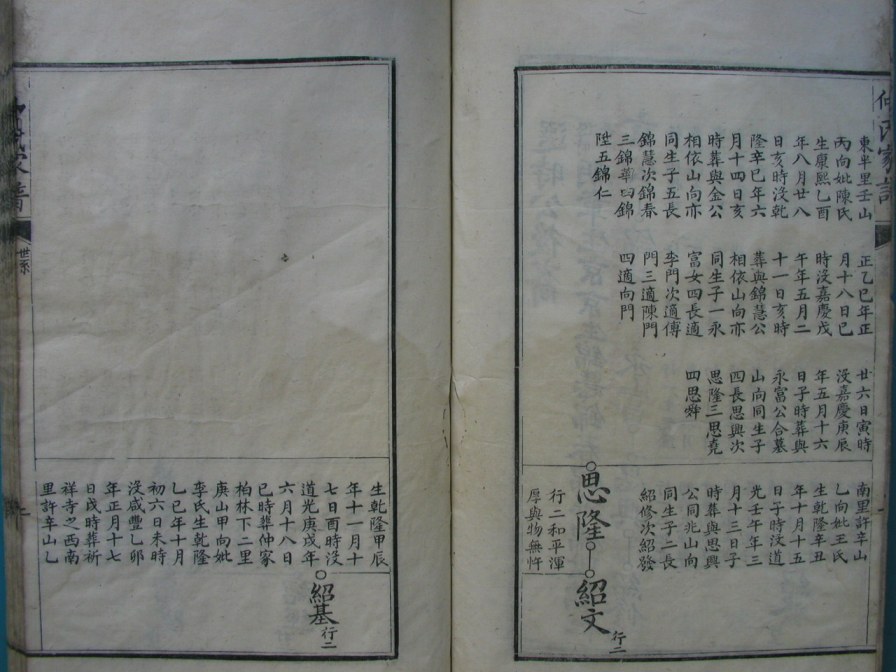 東半里壬山
丙向妣陳氏
生康熙乙酉
年八月廿八
日亥時沒乾
隆辛巳年六
月十四日亥
時葬與金公
相依山向亦
同生子五長
錦慧次錦春
三錦華四錦
陞五錦仁
正乙巳年正
月十八日巳
時沒嘉慶戊
午年五月二
十一日亥時
葬與錦慧公
相依山向亦
同生子一永
富女四長適
李門次適傅
門三適陳門
四適向門
廿六日寅時
沒嘉慶庚辰
年五月十六
日子時葬與
永富公合墓
山向同生子
四長思興次
思隆三思克
四思舜
南里許辛山
乙向妣王氏
生乾隆辛丑
年十月十五
日子時沒道
光壬午年三
月十三日子
時葬與思興
公同兆山向
同生子二長
紹修次紹發
思隆
行二和平渾
厚與物無忤
紹文
行二
生乾隆甲辰
年十一月十
七日酉時沒
道光庚戌年
六月十八日
巳時葬仲家
柏林下二里
庚山甲向妣
李氏生乾隆
乙巳年十月
初六日未時
沒咸豐乙卯
年正月十七
日戌時葬祈
祥寺之西南
里許辛山乙
紹基
行二
世系